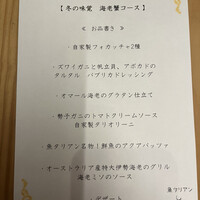 【冬の味覚 海老蟹コース】
≪ お品書き ≫
・自家製フォカッチャ2種
・ズワイガニと帆立貝、アボカドの
タルタル パプリカドレッシング
・オマール海老のグラタン仕立て
・勢子ガニのトマトクリームソース
自家製タリオリーニ
・魚ダリアン名物!鮮魚のアクアパッツァ
・オーストラリア産特大伊勢海老のグリル
海老ミソのソース
・デザート
魚ダリアン